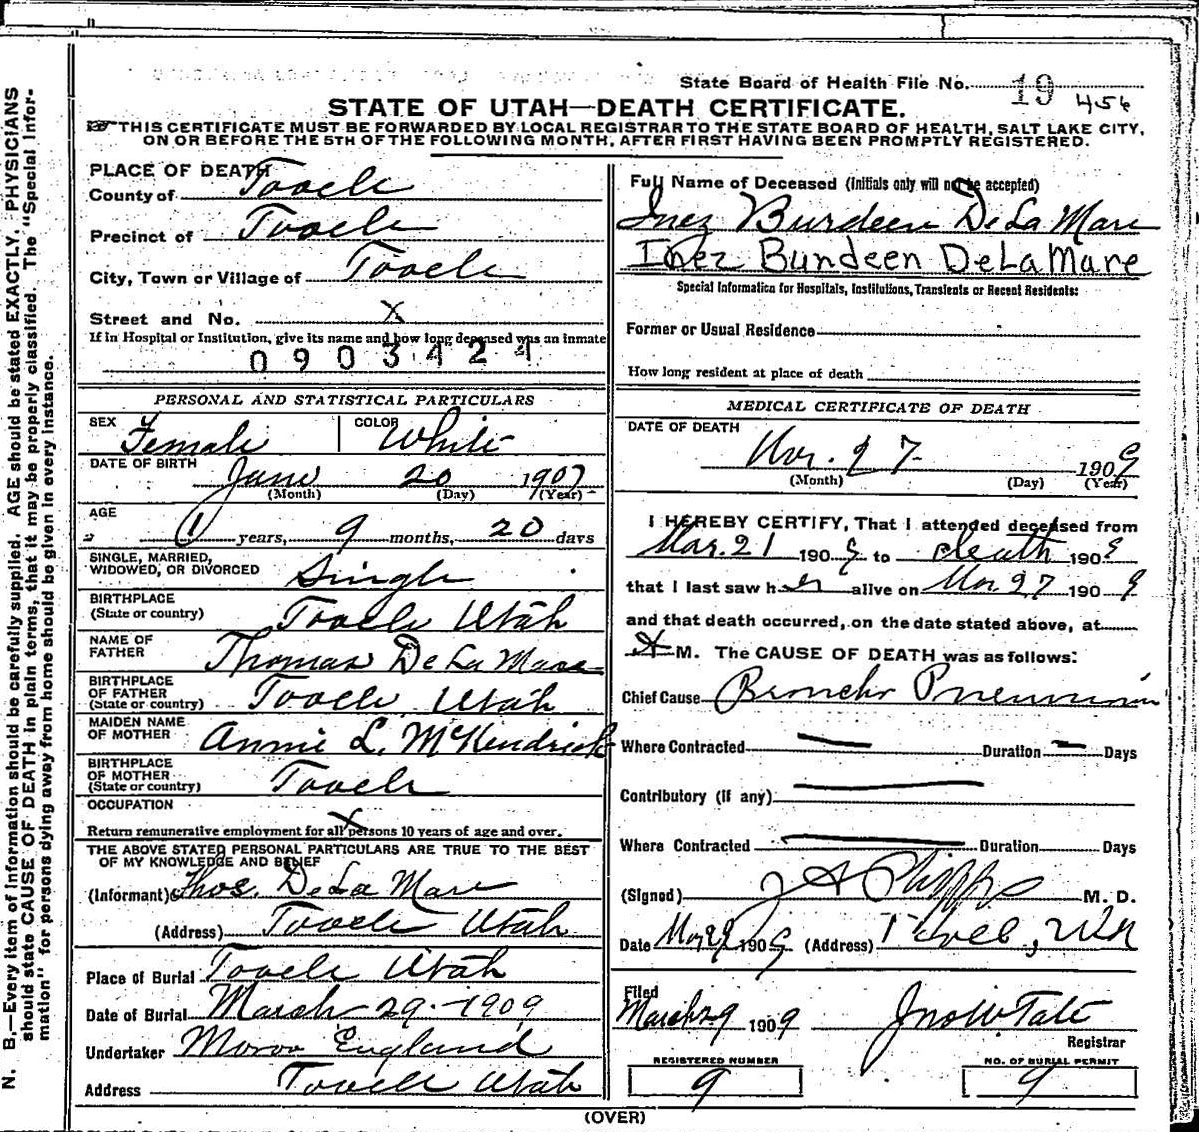 State Board of Health File No. 19 456
STATE OF UTAH—DEATH CERTIFICATE.
THIS CERTIFICATE MUST BE FORWARDED BY LOCAL REGISTRAR TO THE STATE BOARD OF HEALTH, SALT LAKE CITY,
ON OR BEFORE THE 5TH OF THE FOLLOWING MONTH, AFTER FIRST HAVING BEEN PROMPTLY REGISTERED.
N. B.—Every item of information should be carefully supplied. AGE should be stated EXACTLY. PHYSICIANS
should state CAUSE OF DEATH in plain terms, that it may be properly classified. The "Special Infor-
mation" for persons dying away from home should be given in every instance.
PLACE OF DEATH
County of Tooele
Precinct of Tooele
City, Town or Village of Tooele
Street and No. X
If in Hospital or Institution, give its name and how long deceased was an inmate
0903424
PERSONAL AND STATISTICAL PARTICULARS
SEX Female COLOR White
DATE OF BIRTH June 20 1907
(Month) (Day) (Year)
AGE 1 years, 9 months, 20 days
SINGLE, MARRIED,
WIDOWED, OR DIVORCED Single
BIRTHPLACE
(State or country) Tooele Utah
NAME OF
FATHER Thomas DeLaMare
BIRTHPLACE
OF FATHER
(State or country) Tooele Utah
MAIDEN NAME
OF MOTHER Annie L. McKendrick
BIRTHPLACE
OF MOTHER
(State or country) Tooele
OCCUPATION X
Return remunerative employment for all persons 10 years of age and over.
THE ABOVE STATED PERSONAL PARTICULARS ARE TRUE TO THE BEST
OF MY KNOWLEDGE AND BELIEF
(Informant) Thos. DeLaMare
(Address) Tooele Utah
Place of Burial Tooele Utah
Date of Burial March 29-1909
Undertaker England
Address Tooele Utah
Full Name of Deceased (Initials only will not be accepted)
Inez Burdeen DeLaMare
Inez Bundeen DeLaMare
Special Information for Hospitals, Institutions, Transients or Recent Residents:
Former or Usual Residence
How long resident at place of death
MEDICAL CERTIFICATE OF DEATH
DATE OF DEATH
Mar. 27 1909
(Month) (Day) (Year)
I HEREBY CERTIFY, That I attended deceased from
Mar. 21 1909 to death 1909
that I last saw her alive on Mar. 27 1909
and that death occurred, on the date stated above, at
A M. The CAUSE OF DEATH was as follows:
Chief Cause Broncho Pneumonia
Where Contracted — Duration — Days
Contributory (if any) —
Where Contracted — Duration Days
(Signed) J A Phipps M. D.
Date 1909 (Address) Tooele, Utah
Filed
March 29 1909 Jno W Tate
Registrar
REGISTERED NUMBER
9
NO. OF BURIAL PERMIT
9
(OVER)